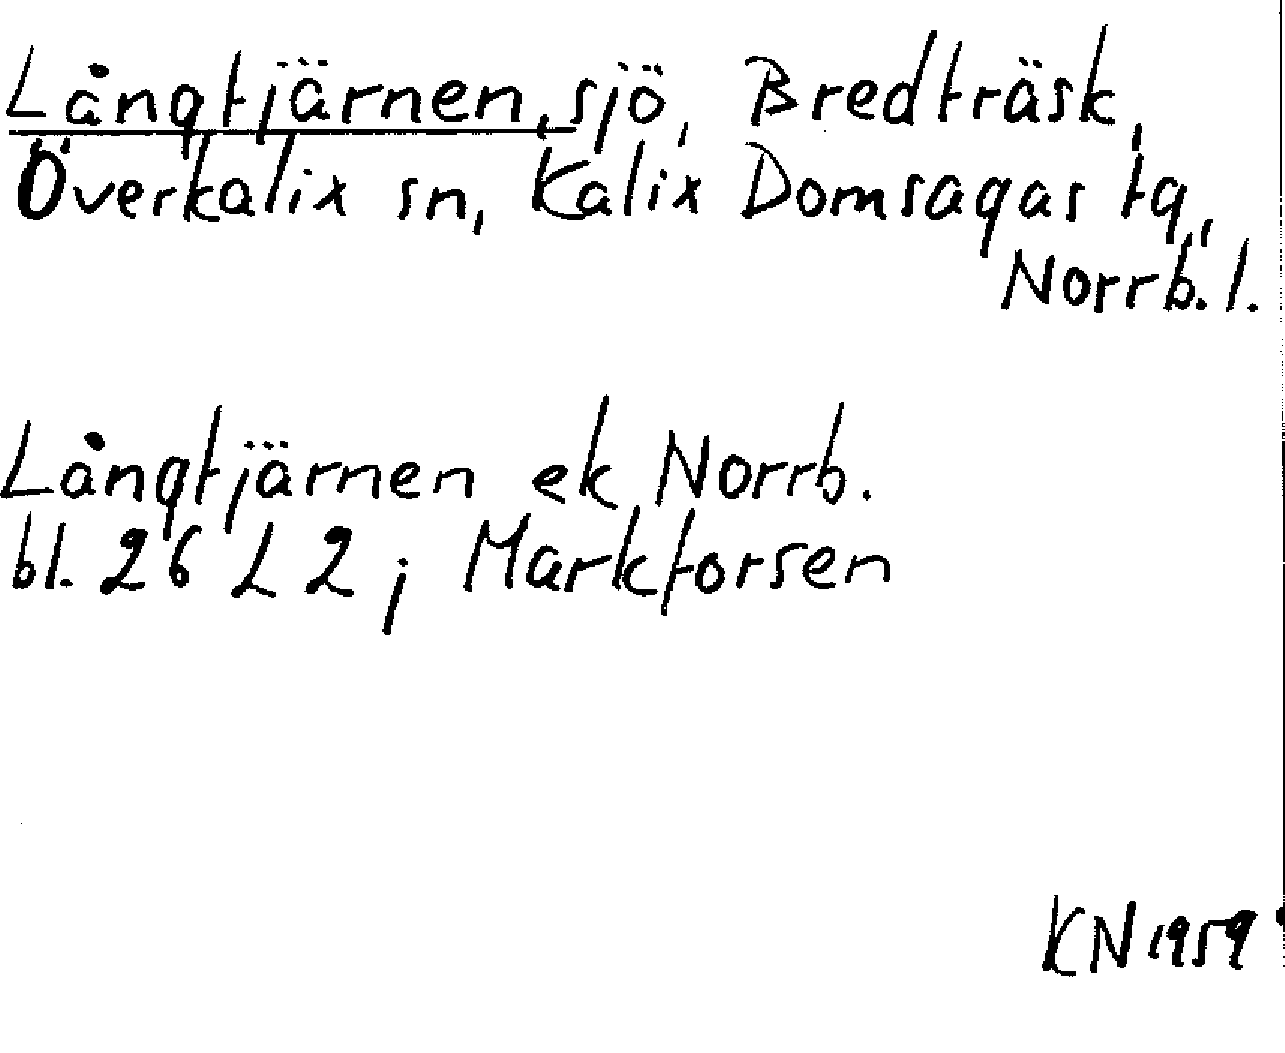 Långtjärnen, sjö, Bredträsk,
Överkalix sn, Kalix Domsagas tg,
Norrb. l.
Långtjärnen ek Norrb.
bl. 26 L 2 j Markforsen
KN 1959